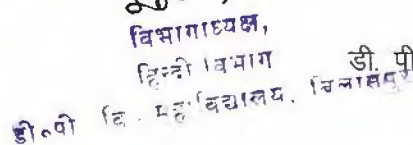 विभागाध्यक्ष,
हिन्दी विभाग
डी. पी
डी०पी वि. महाविद्यालय. बिलासपुर